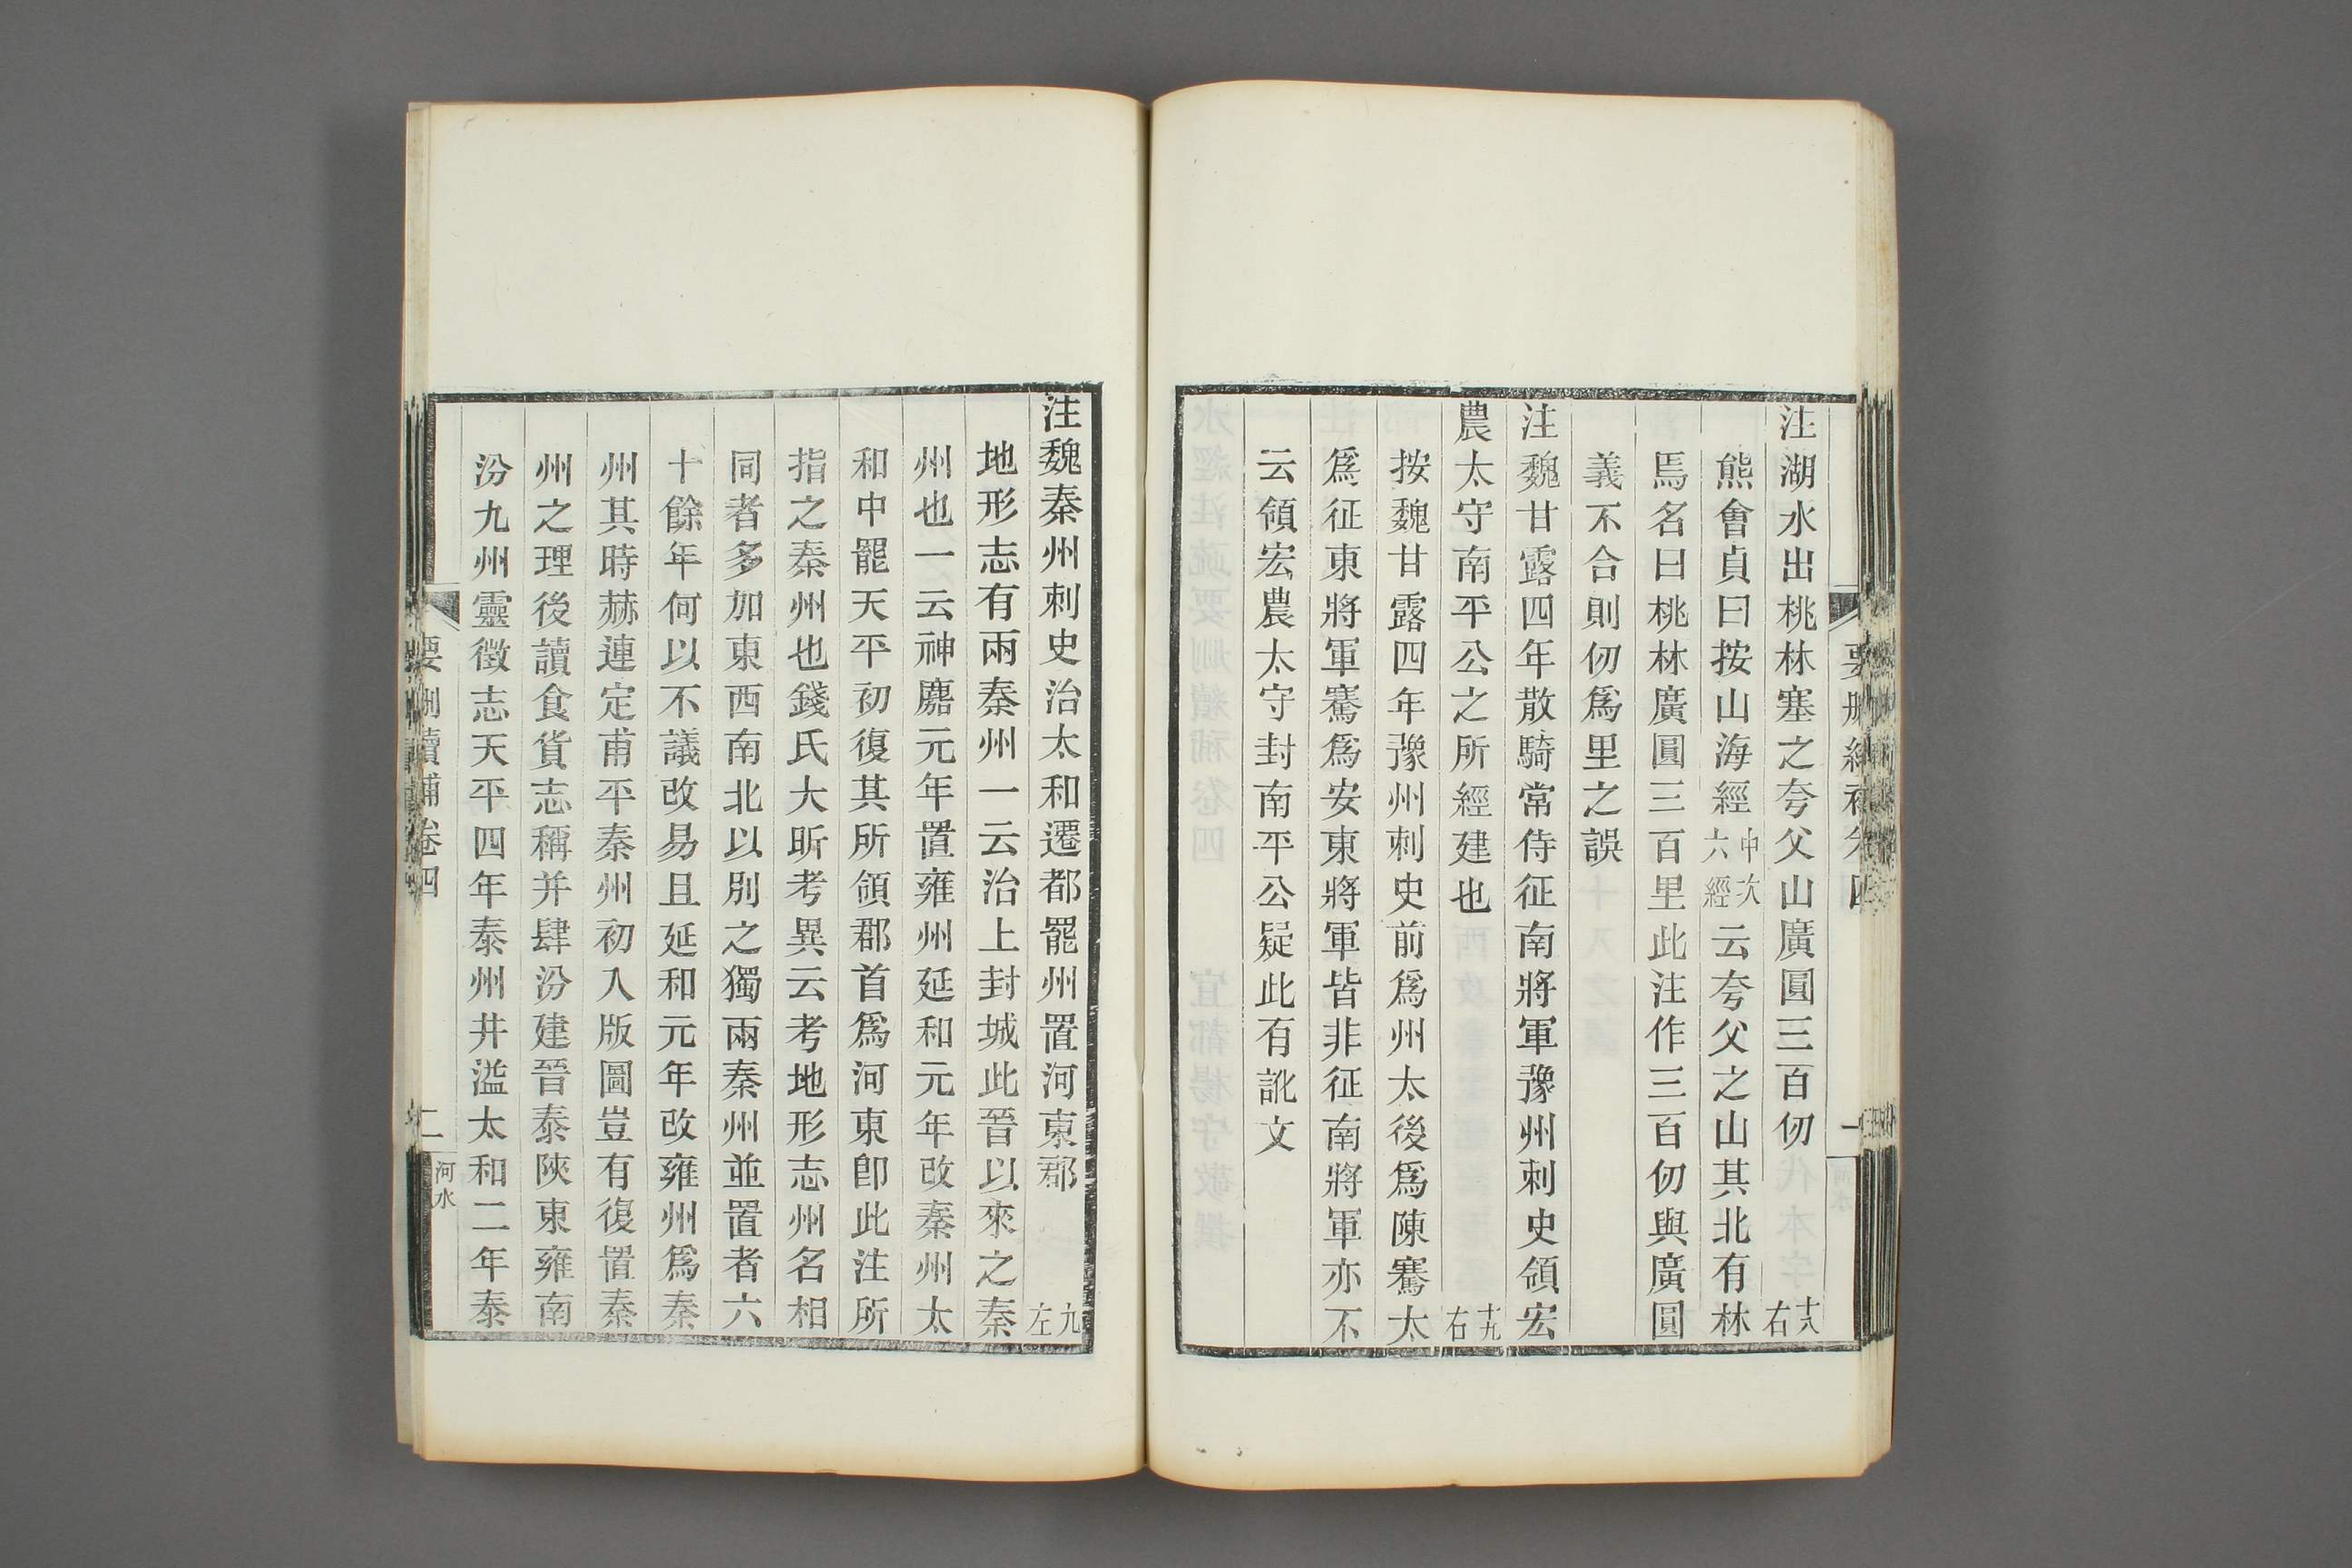 注湖水出桃林塞之夸父山廣圓三百仞十八右
熊會貞曰按山海經中次六經云夸父之山其北有林
焉名曰桃林廣圓三百里此注作三百仞與廣圓
義不合則仞爲里之誤
注魏甘露四年散騎常侍征南將軍豫州刺史領宏
農太守南平公之所經建也十九右
按魏甘露四年豫州刺史前爲州太後爲陳騫太
爲征東將軍騫爲安東將軍皆非征南將軍亦不
云領宏農太守封南平公疑此有訛文
注魏秦州刺史治太和遷都罷州置河東郡九左
地形志有兩秦州一云治上封城此晉以來之秦
州也一云神䴥元年置雍州延和元年改秦州太
和中罷天平初復其所領郡首爲河東卽此注所
指之秦州也錢氏大昕考異云考地形志州名相
同者多加東西南北以別之獨兩秦州並置者六
十餘年何以不議改易且延和元年改雍州爲秦
州其時赫連定甫平秦州初入版圖豈有復置秦
州之理後讀食貨志稱并肆汾建晉泰陝東雍南
汾九州靈徵志天平四年泰州井溢太和二年泰
要刪續補卷四 二 河水